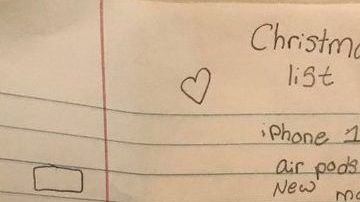 Christma
list
iPhone 1
air pods
New